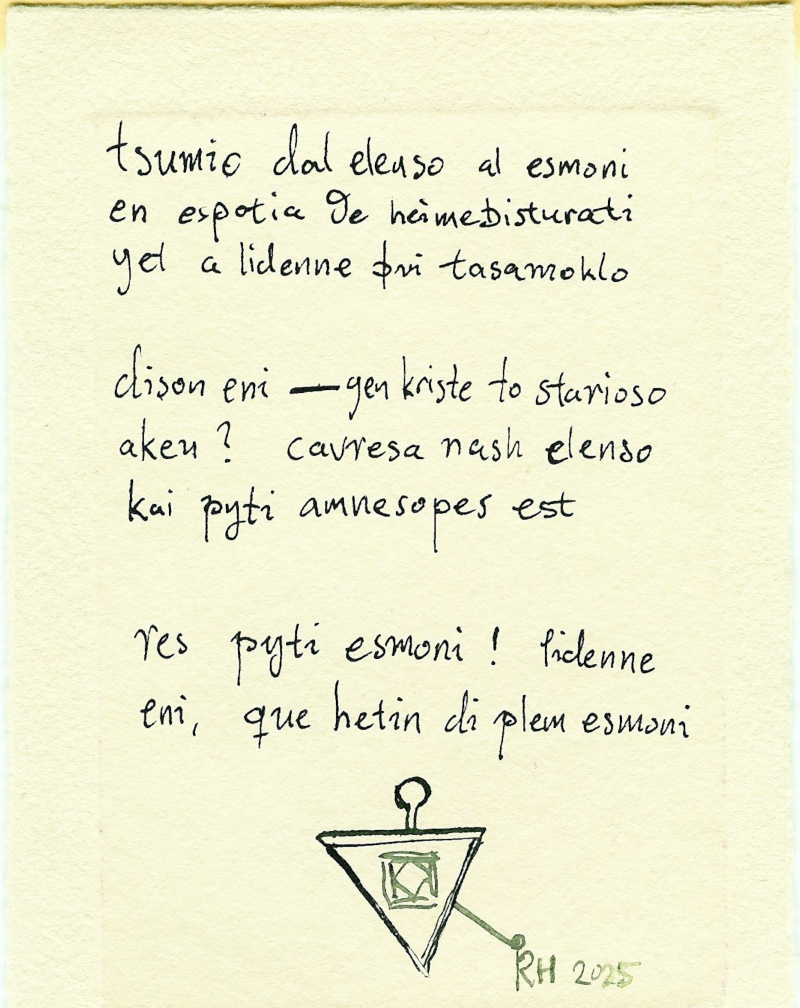 tsumio dal elenso al esmoni
en espotia de heimedisturati
yet a lidenne þvi tasamoklo
dison eni — gen kriste to starioso
aken? cavresa nash elenso
kai pyti amnesopes est
res pyti esmoni! lidenne
eni, que hetin di plem esmoni
RH 2025